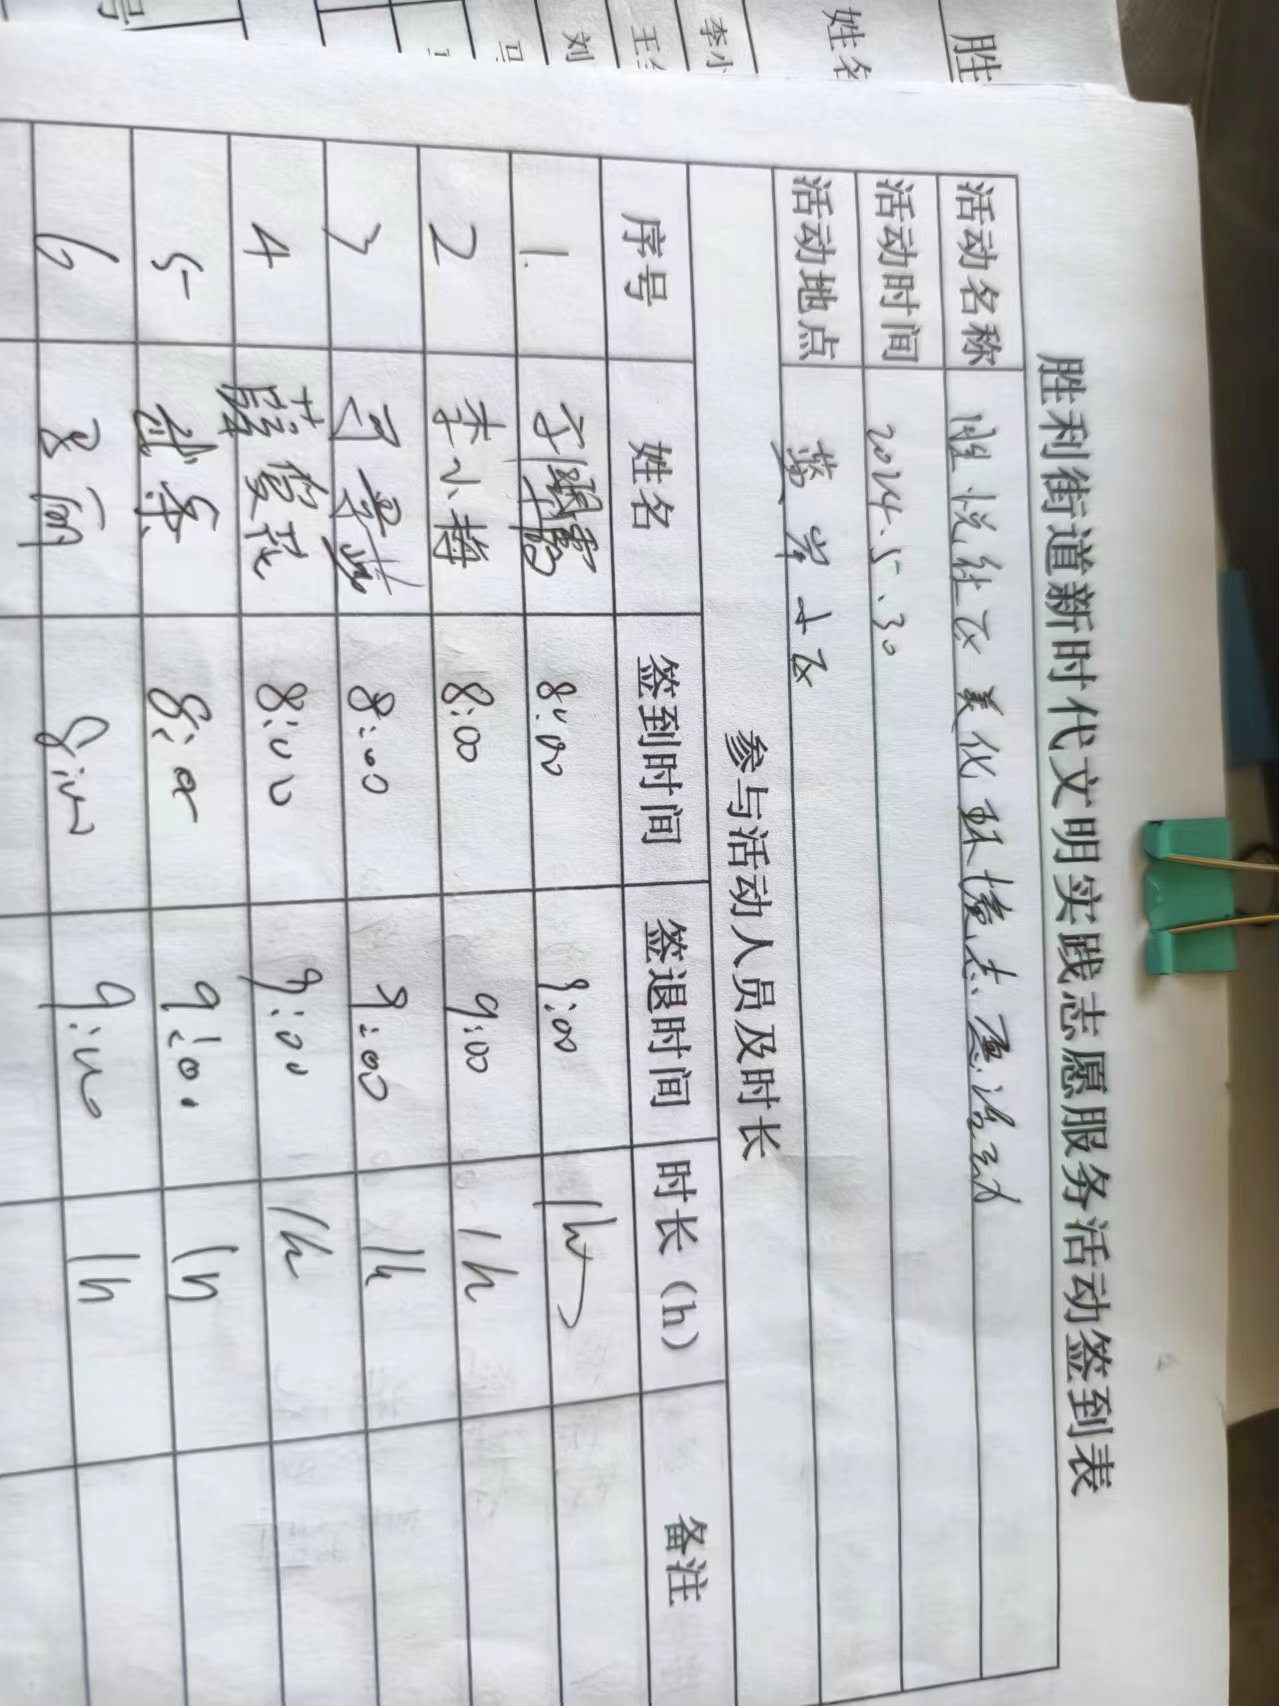 胜
姓名
李小
王
刘
号
胜利街道新时代文明实践志愿服务活动签到表
活动名称 胜悦社区美化环境志愿活动
活动时间 2024.5.30
活动地点 岸小区
参与活动人员及时长
序号 姓名 签到时间 签退时间 时长（h） 备注
1. 8:00 9:00 1h
2 李小梅 8:00 9:00 1h
3 8:00 9:00 1h
4 薛俊花 8:00 9:00 1h
5 8:00 9:00 1h
6 丽 8:00 9:00 1h